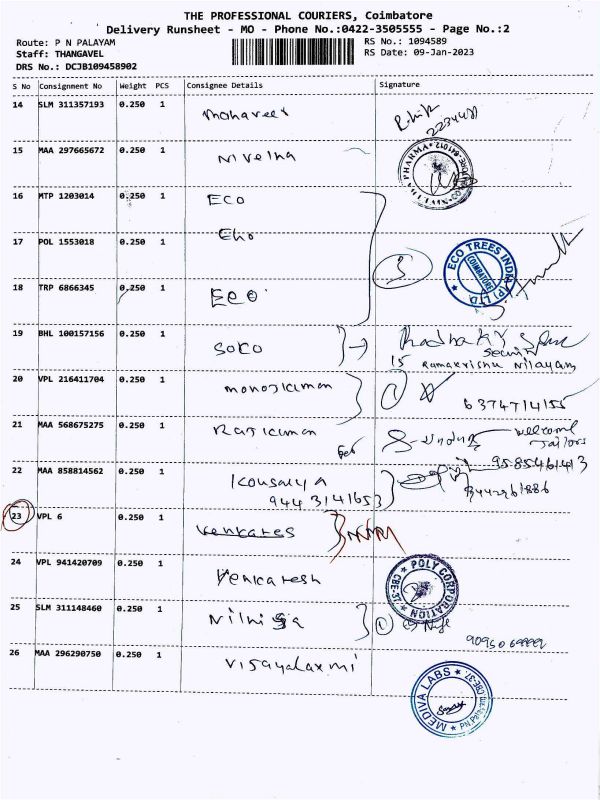 THE PROFESSIONAL COURIERS, Coimbatore
Delivery Runsheet - MO - Phone No.:0422-3505555 - Page No.:2
Route: P N PALAYAM
RS No.: 1094589
Staff: THANGAVEL
RS Date: 09-Jan-2023
DRS No.: DCJB109458902
S No Consignment No Weight PCS Consignee Details Signature
14 SLM 311357193 0.250 1 Mahaveer
15 MAA 297665672 0.250 1 Nivetha
16 MTP 1203014 0.250 1 ECO
17 POL 1553018 0.250 1
18 TRP 6866345 0.250 1 ECO
3
ECO TREES INDIA (P) LTD
COIMBATORE
19 BHL 100157156 0.250 1 SOKO
15 Ramakrishna Nilayam
20 VPL 216411704 0.250 1 manojkumar
1
6374714155
21 MAA 568675275 0.250 1 Rajkumar
welcome
Tailors
22 MAA 858814562 0.250 1 Kousalya
9443141653
23 VPL 6 0.250 1 Venkates
24 VPL 941420709 0.250 1 Venkaresh
POLY CORPORATION
CBE-37
25 SLM 311148460 0.250 1
1
26 MAA 296290750 0.250 1 Visayalaxmi
MEDIVA LABS